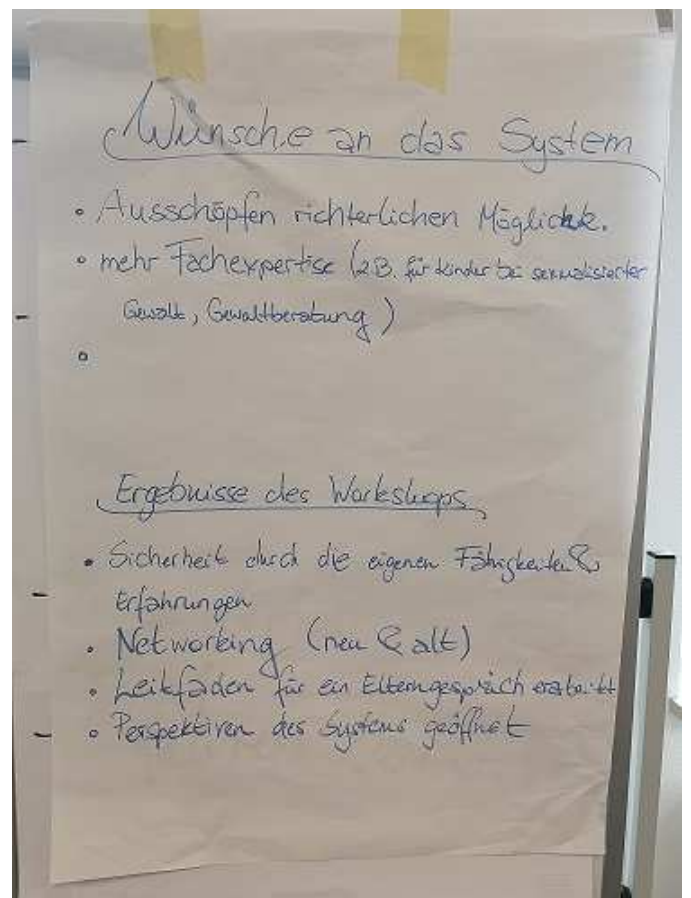 Wünsche an das System
• Ausschöpfen richterlichen Möglichk.
• mehr Fachexpertise (z.B. für Kinder bei sexualisierter
Gewalt, Gewaltberatung)
•
Ergebnisse des Workshops
• Sicherheit durch die eigenen Fähigkeiten &
Erfahrungen
• Networking (neu & alt)
• Leitfaden für ein Elterngespräch erarbeitet
• Perspektiven des Systems geöffnet